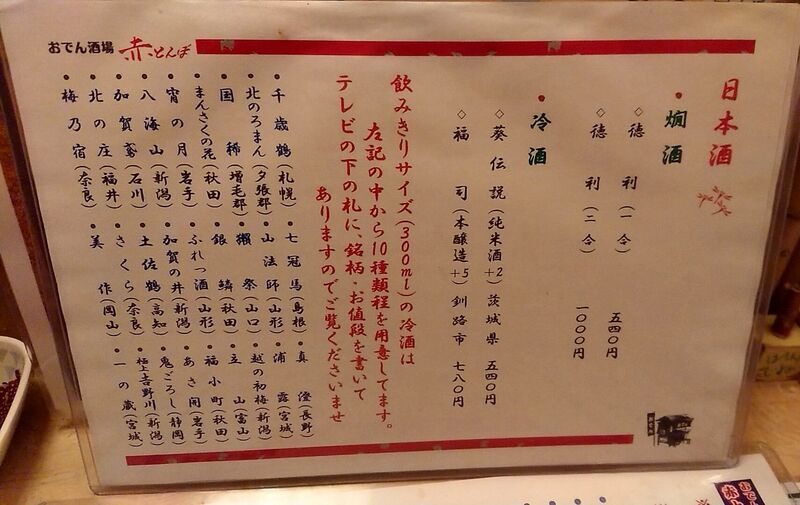 おでん酒場 赤とんぼ
日本酒
・燗酒
◇徳利(一合) 五四〇円
◇徳利(二合) 一〇〇〇円
・冷酒
◇葵伝説(純米酒+2)茨城県 五四〇円
◇福司(本醸造+5)釧路市 七八〇円
飲みきりサイズ(300ml)の冷酒は
左記の中から10種類程を用意してます。
テレビの下の札に、銘柄・お値段を書いて
ありますのでご覧くださいませ
・千歳鶴(札幌)・七冠馬(島根)・真澄(長野)
・北のろまん(夕張郡)・山法師(山形)・浦霞(宮城)
・国稀(増毛郡)・獺祭(山口)・越の初梅(新潟)
・まんさくの花(秋田)・銀鱗(秋田)・立山(富山)
・宵の月(岩手)・ふれっ酒(山形)・福小町(秋田)
・八海山(新潟)・加賀の井(新潟)・あさ開(岩手)
・加賀鳶(石川)・土佐鶴(高知)・鬼ごろし(静岡)
・北の庄(福井)・さくら(奈良)・極上吉野川(新潟)
・梅乃宿(奈良)・美作(岡山)・一の蔵(宮城)